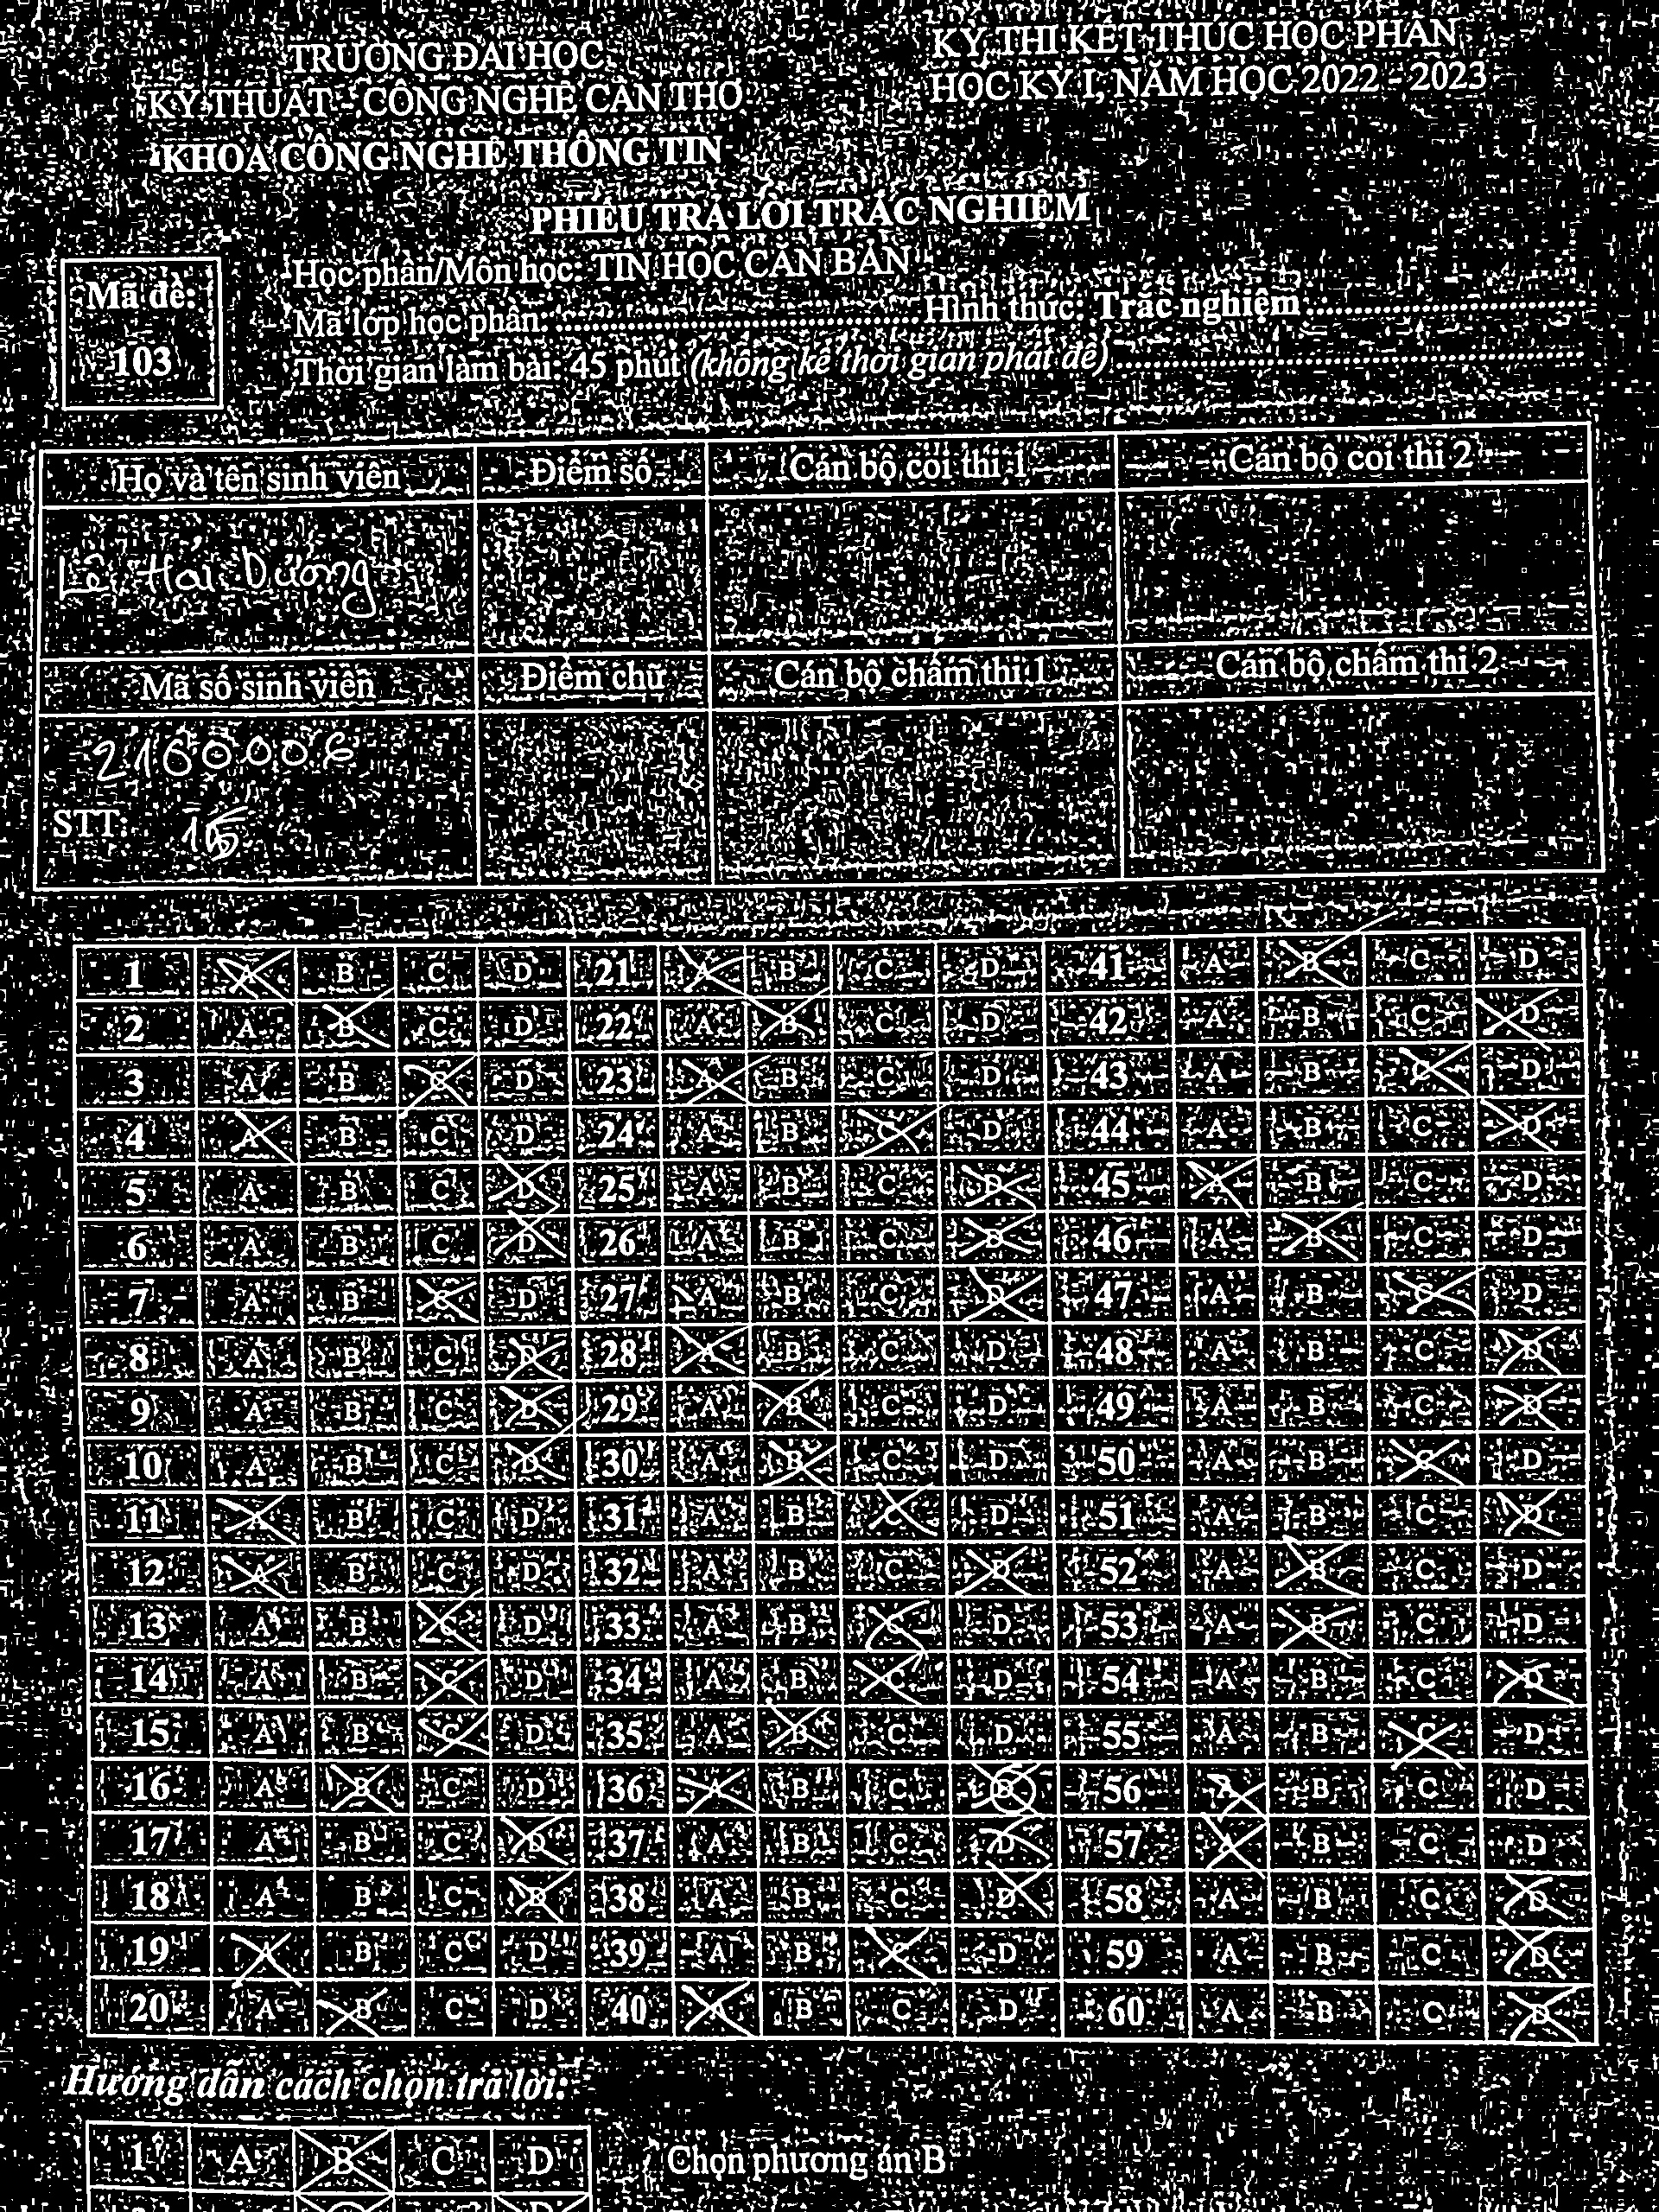 TRƯỜNG ĐẠI HỌC
KỸ THUẬT - CÔNG NGHỆ CẦN THƠ
KHOA CÔNG NGHỆ THÔNG TIN
KỲ THI KẾT THÚC HỌC PHẦN
HỌC KỲ I, NĂM HỌC 2022 - 2023
PHIẾU TRẢ LỜI TRẮC NGHIỆM
Mã đề:
103
Học phần/Môn học: TIN HỌC CĂN BẢN
Mã lớp học phần: Hình thức: Trắc nghiệm
Thời gian làm bài: 45 phút (không kể thời gian phát đề)
Họ và tên sinh viên Điểm số Cán bộ coi thi 1 Cán bộ coi thi 2
Lê Hải Dương
Mã số sinh viên Điểm chữ Cán bộ chấm thi 1 Cán bộ chấm thi 2
2160006
STT: 15
1 A B C D 21 A B C D 41 A B C D
2 A B C D 22 A B C D 42 A B C D
3 A B C D 23 A B C D 43 A B C D
4 A B C D 24 A B C D 44 A B C D
5 A B C D 25 A B C D 45 A B C D
6 A B C D 26 A B C D 46 A B C D
7 A B C D 27 A B C D 47 A B C D
8 A B C D 28 A B C D 48 A B C D
9 A B C D 29 A B C D 49 A B C D
10 A B C D 30 A B C D 50 A B C D
11 A B C D 31 A B C D 51 A B C D
12 A B C D 32 A B C D 52 A B C D
13 A B C D 33 A B C D 53 A B C D
14 A B C D 34 A B C D 54 A B C D
15 A B C D 35 A B C D 55 A B C D
16 A B C D 36 A B C D 56 A B C D
17 A B C D 37 A B C D 57 A B C D
18 A B C D 38 A B C D 58 A B C D
19 A B C D 39 A B C D 59 A B C D
20 A B C D 40 A B C D 60 A B C D
Hướng dẫn cách chọn trả lời:
1 A B C D Chọn phương án B